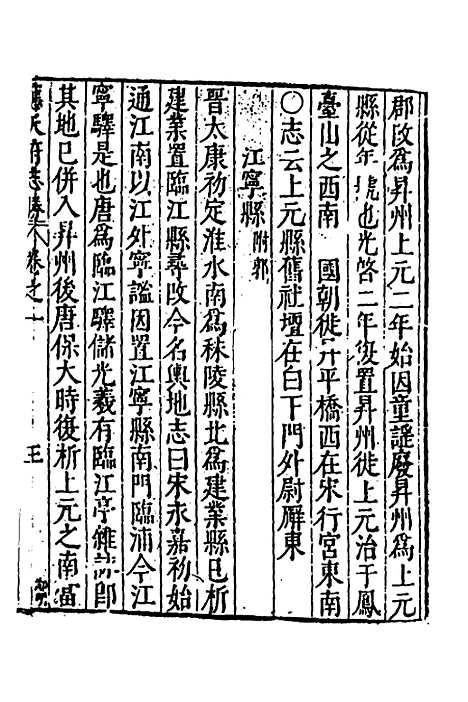 郡改為昇州上元二年始因童謠廢昇州為上元
縣從年號也光啓二年復置昇州徙上元治于鳳
臺山之西南　國朝徙昇平橋西在宋行宮東南
○志云上元縣舊社壇在白下門外尉廨東
江寧縣附郭
晉太康初定淮水南為秣陵縣北為建業縣已析
建業置臨江縣尋改今名輿地志曰宋永嘉初始
通江南以江外寧謐因置江寧縣南門臨浦今江
寧驛是也唐為臨江驛儲光羲有臨江亭雜詩即
其地已併入昇州後唐保大時復析上元之南
府志勝　卷之十